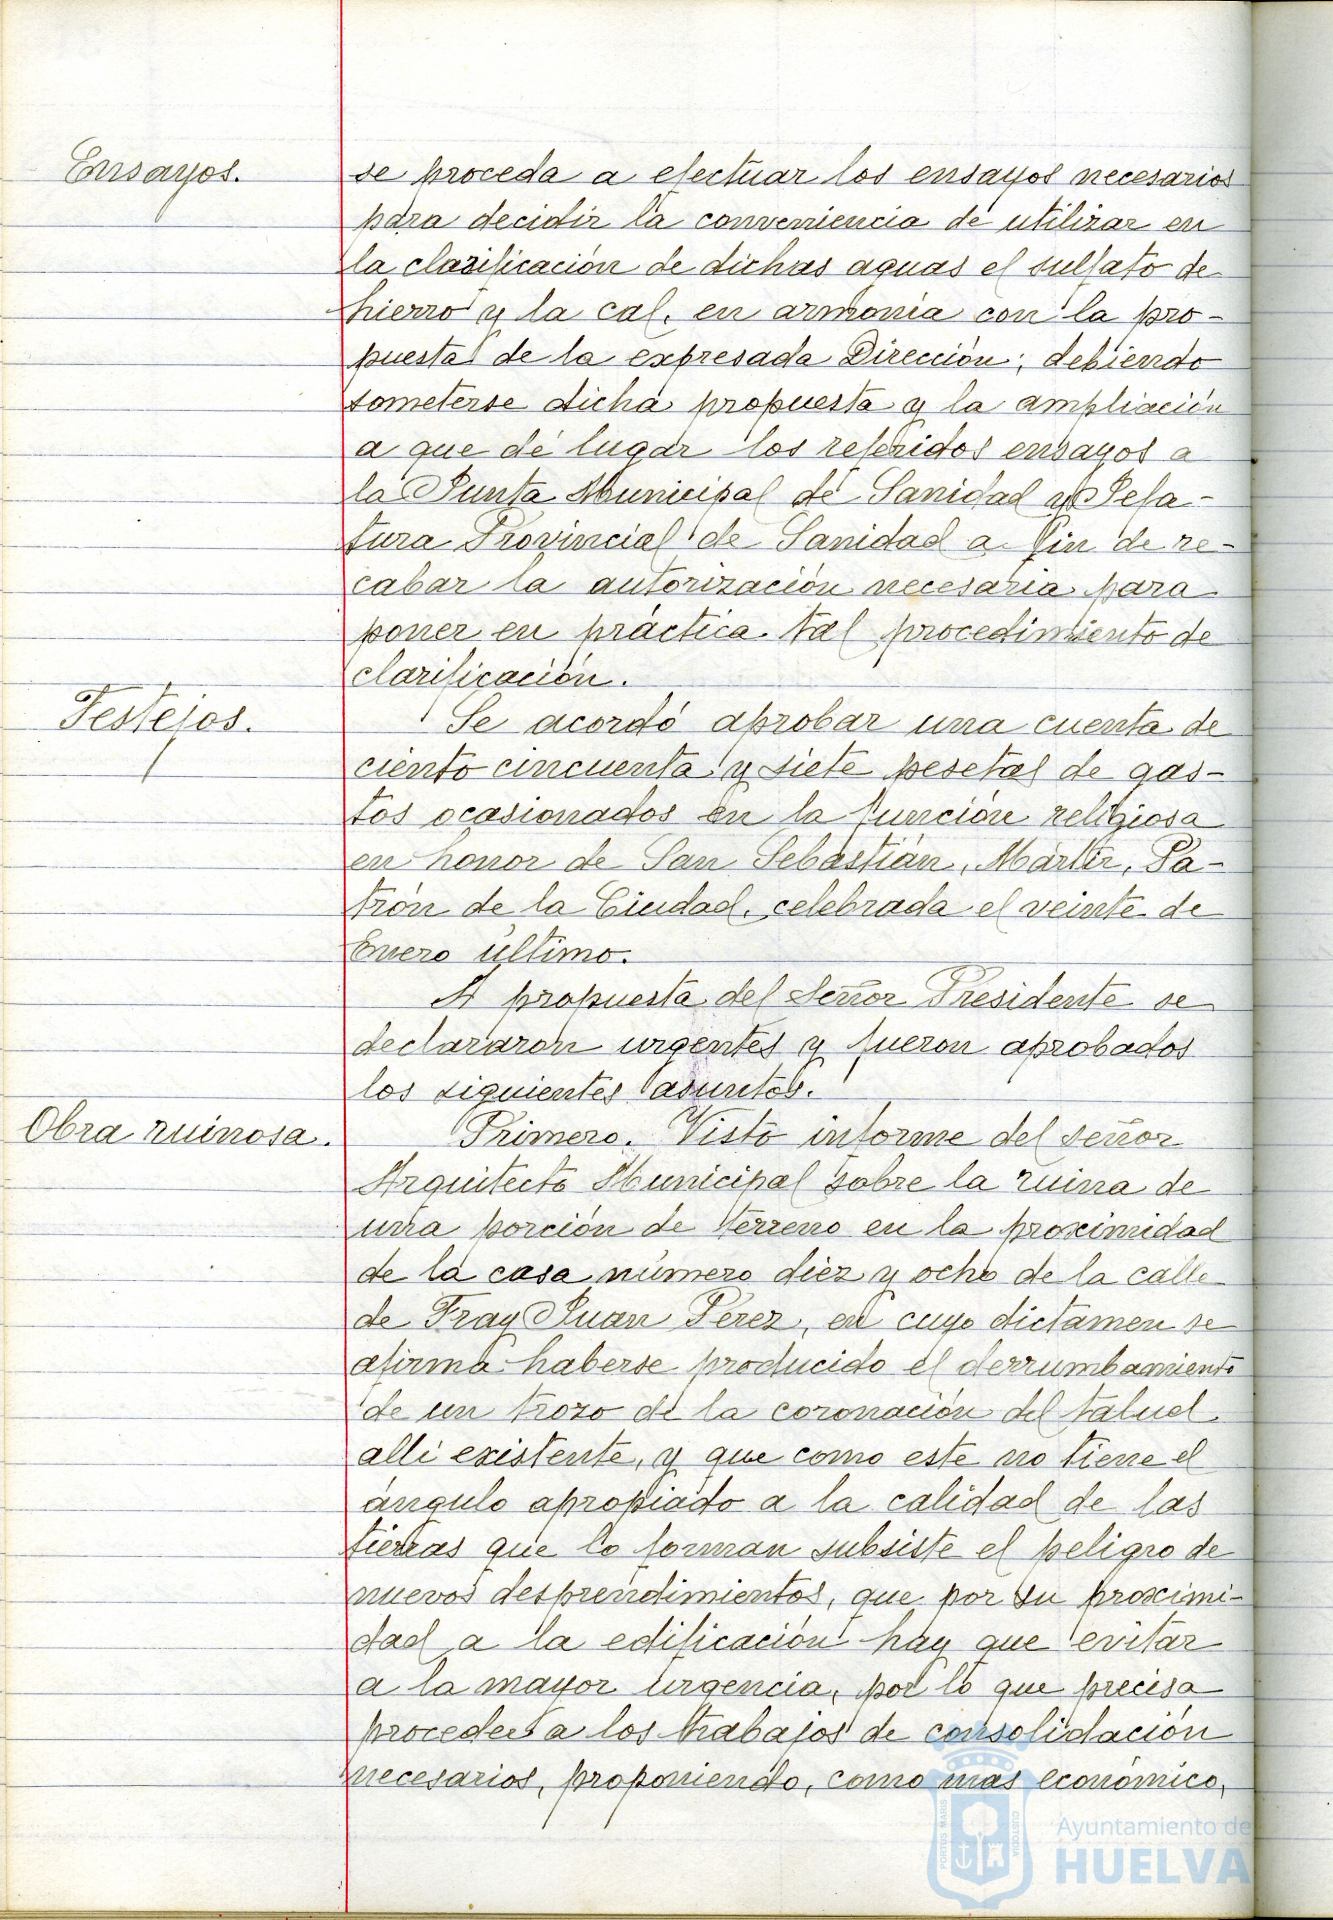 Ensayos.
se proceda a efectuar los ensayos necesarios
para decidir la conveniencia de utilizar en
la clarificación de dichas aguas el sulfato de
hierro y la cal, en armonía con la pro-
puesta de la expresada Dirección; debiendo
someterse dicha propuesta y la ampliación
a que dé lugar los referidos ensayos a
la Junta Municipal de Sanidad y Jefa-
tura Provincial de Sanidad a fin de re-
cabar la autorización necesaria para
poner en práctica tal procedimiento de
clarificación.
Festejos.
Se acordó aprobar una cuenta de
ciento cincuenta y siete pesetas de gas-
tos ocasionados en la función religiosa
en honor de San Sebastián, Mártir, Pa-
trón de la Ciudad, celebrada el veinte de
Enero último.
A propuesta del Señor Presidente se
declararon urgentes y fueron aprobados
los siguientes asuntos.
Obra ruinosa.
Primero. Visto informe del señor
Arquitecto Municipal sobre la ruina de
una porción de terreno en la proximidad
de la casa número diez y ocho de la calle
de Fray Juan Pérez, en cuyo dictamen se
afirma haberse producido el derrumbamiento
de un trozo de la coronación del talud
alli existente, y que como este no tiene el
ángulo apropiado a la calidad de las
tierras que lo forman subsiste el peligro de
nuevos desprendimientos, que por su proximi-
dad a la edificación hay que evitar
a la mayor urgencia, por lo que precisa
proceder a los trabajos de consolidación
necesarios, proponiendo, como mas económico,
PORTUS MARIS
CUSTODIA
Ayuntamiento de
HUELVA